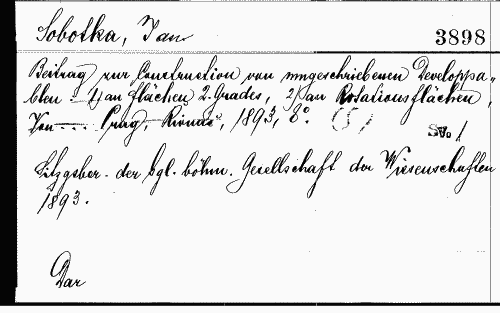 Sobotka, Jan
3898
Beitrag zur Construction von umgeschriebenen Developpa-
blen: 1) an Flächen 2. Grades, 2) an Rotationsflächen,
Von --- Prag, Řivnáč, 1893, 8°. (5)
Sv. 1
Sitzgsber. der kgl. böhm. Gesellschaft der Wissenschaften
1893.
Dar